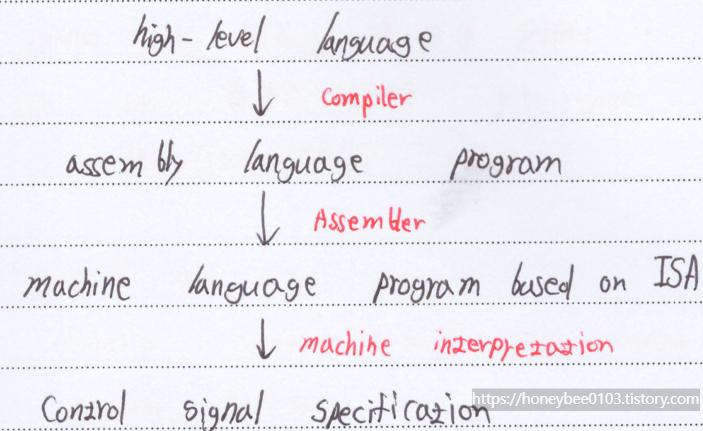 high-level language
Compiler
assembly language program
Assembler
machine language program based on ISA
machine interpretation
Control signal specification
https://honeybee0103.tistory.com